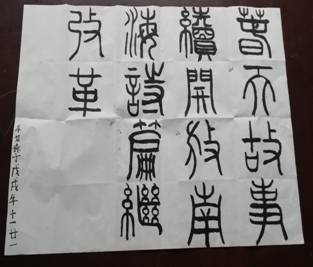 春天故事
續開放南
海詩篇繼
改革
戊戌年十一廿一